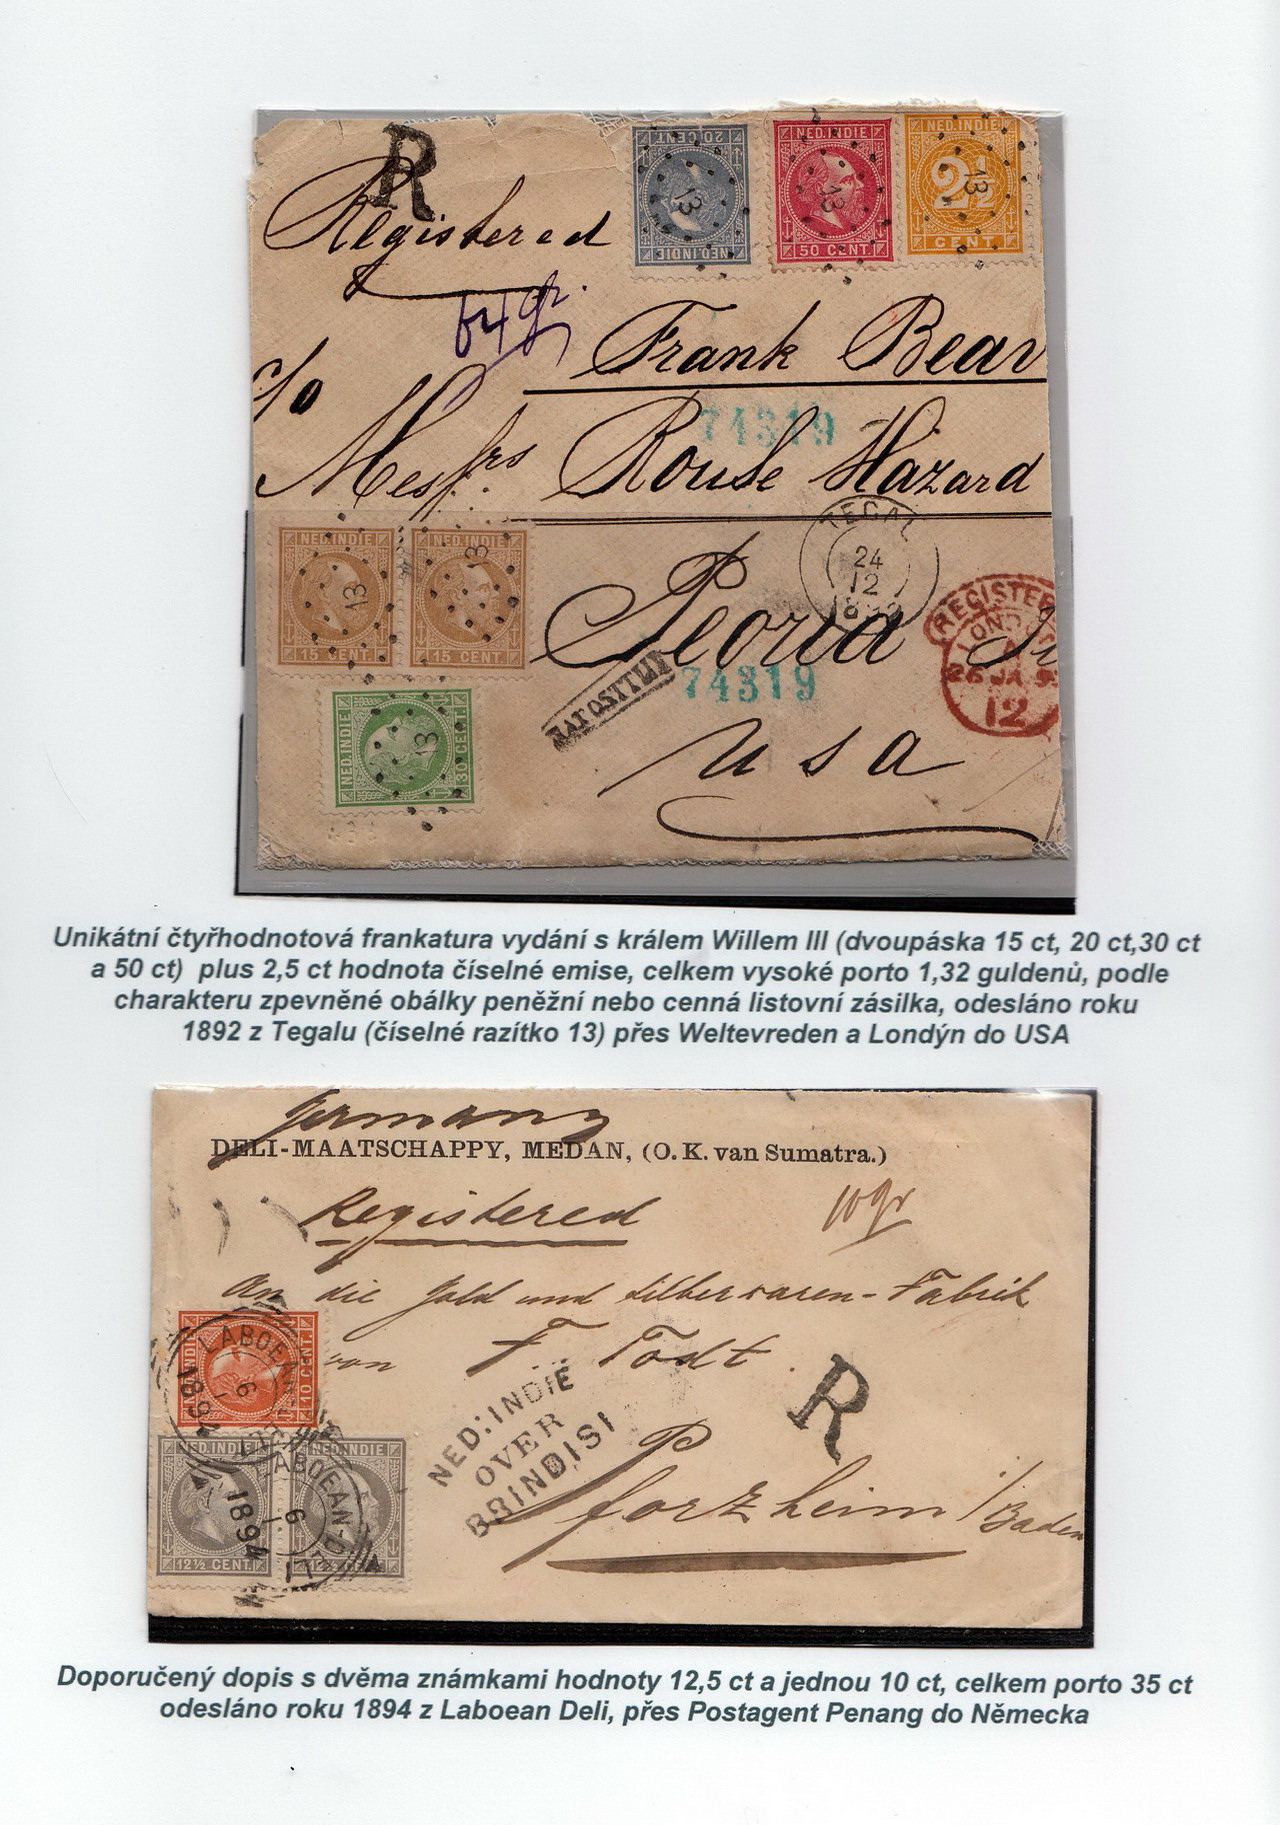 R
Registered
64 gr.
20 CENT
NED.INDIE
13
NED.INDIE
50 CENT.
13
NED.INDIE
2½
CENT
13
Frank Bear
c/o
74319
Messrs Rouse Hazard
TEGAL
24
12
1892
NED.INDIE
15 CENT.
13
NED.INDIE
15 CENT.
13
Peoria
REGISTERED
LONDON
26 JA 9
12
74319
NED.INDIE
30 CENT.
13
USA
Unikátní čtyřhodnotová frankatura vydání s králem Willem III (dvoupáska 15 ct, 20 ct,30 ct
a 50 ct) plus 2,5 ct hodnota číselné emise, celkem vysoké porto 1,32 guldenů, podle
charakteru zpevněné obálky peněžní nebo cenná listovní zásilka, odesláno roku
1892 z Tegalu (číselné razítko 13) přes Weltevreden a Londýn do USA
Germany
DELI-MAATSCHAPPY, MEDAN, (O. K. van Sumatra.)
Registered
10 gr
An die Gold und Silberwaren-Fabrik
von F. Todt.
NED.INDIE
10 CENT.
LABOEAN-DELI
6
1
1894
R
NED: INDIË
OVER
BRINDISI
NED.INDIE
12½ CENT.
NED.INDIE
12½ CENT.
LABOEAN-DELI
6
1
1894
Pforzheim / Baden
Doporučený dopis s dvěma známkami hodnoty 12,5 ct a jednou 10 ct, celkem porto 35 ct
odesláno roku 1894 z Laboean Deli, přes Postagent Penang do Německa